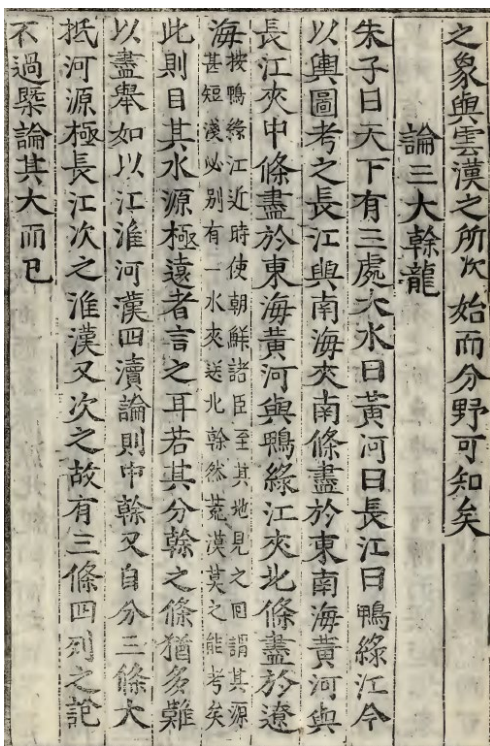 之象與雲漢之所次始而分野可知矣
論三大幹龍
朱子曰天下有三處大水曰黃河曰長江曰鴨綠江今
以輿圖考之長江與南海夾南條盡於東南海黃河與
長江夾中條盡於東海黃河與鴨綠江夾北條盡於遼
海按鴨綠江近時使朝鮮諸臣至其地見之囘謂其源
甚短淺必別有一水夾送北幹然荒漠莫之能考矣
此則目其水源極遠者言之耳若其分幹之條猶多難
以盡舉如以江淮河漢四瀆論則中幹又自分三條大
抵河源極長江次之淮漢又次之故有三條四列之説
不過槩論其大而已